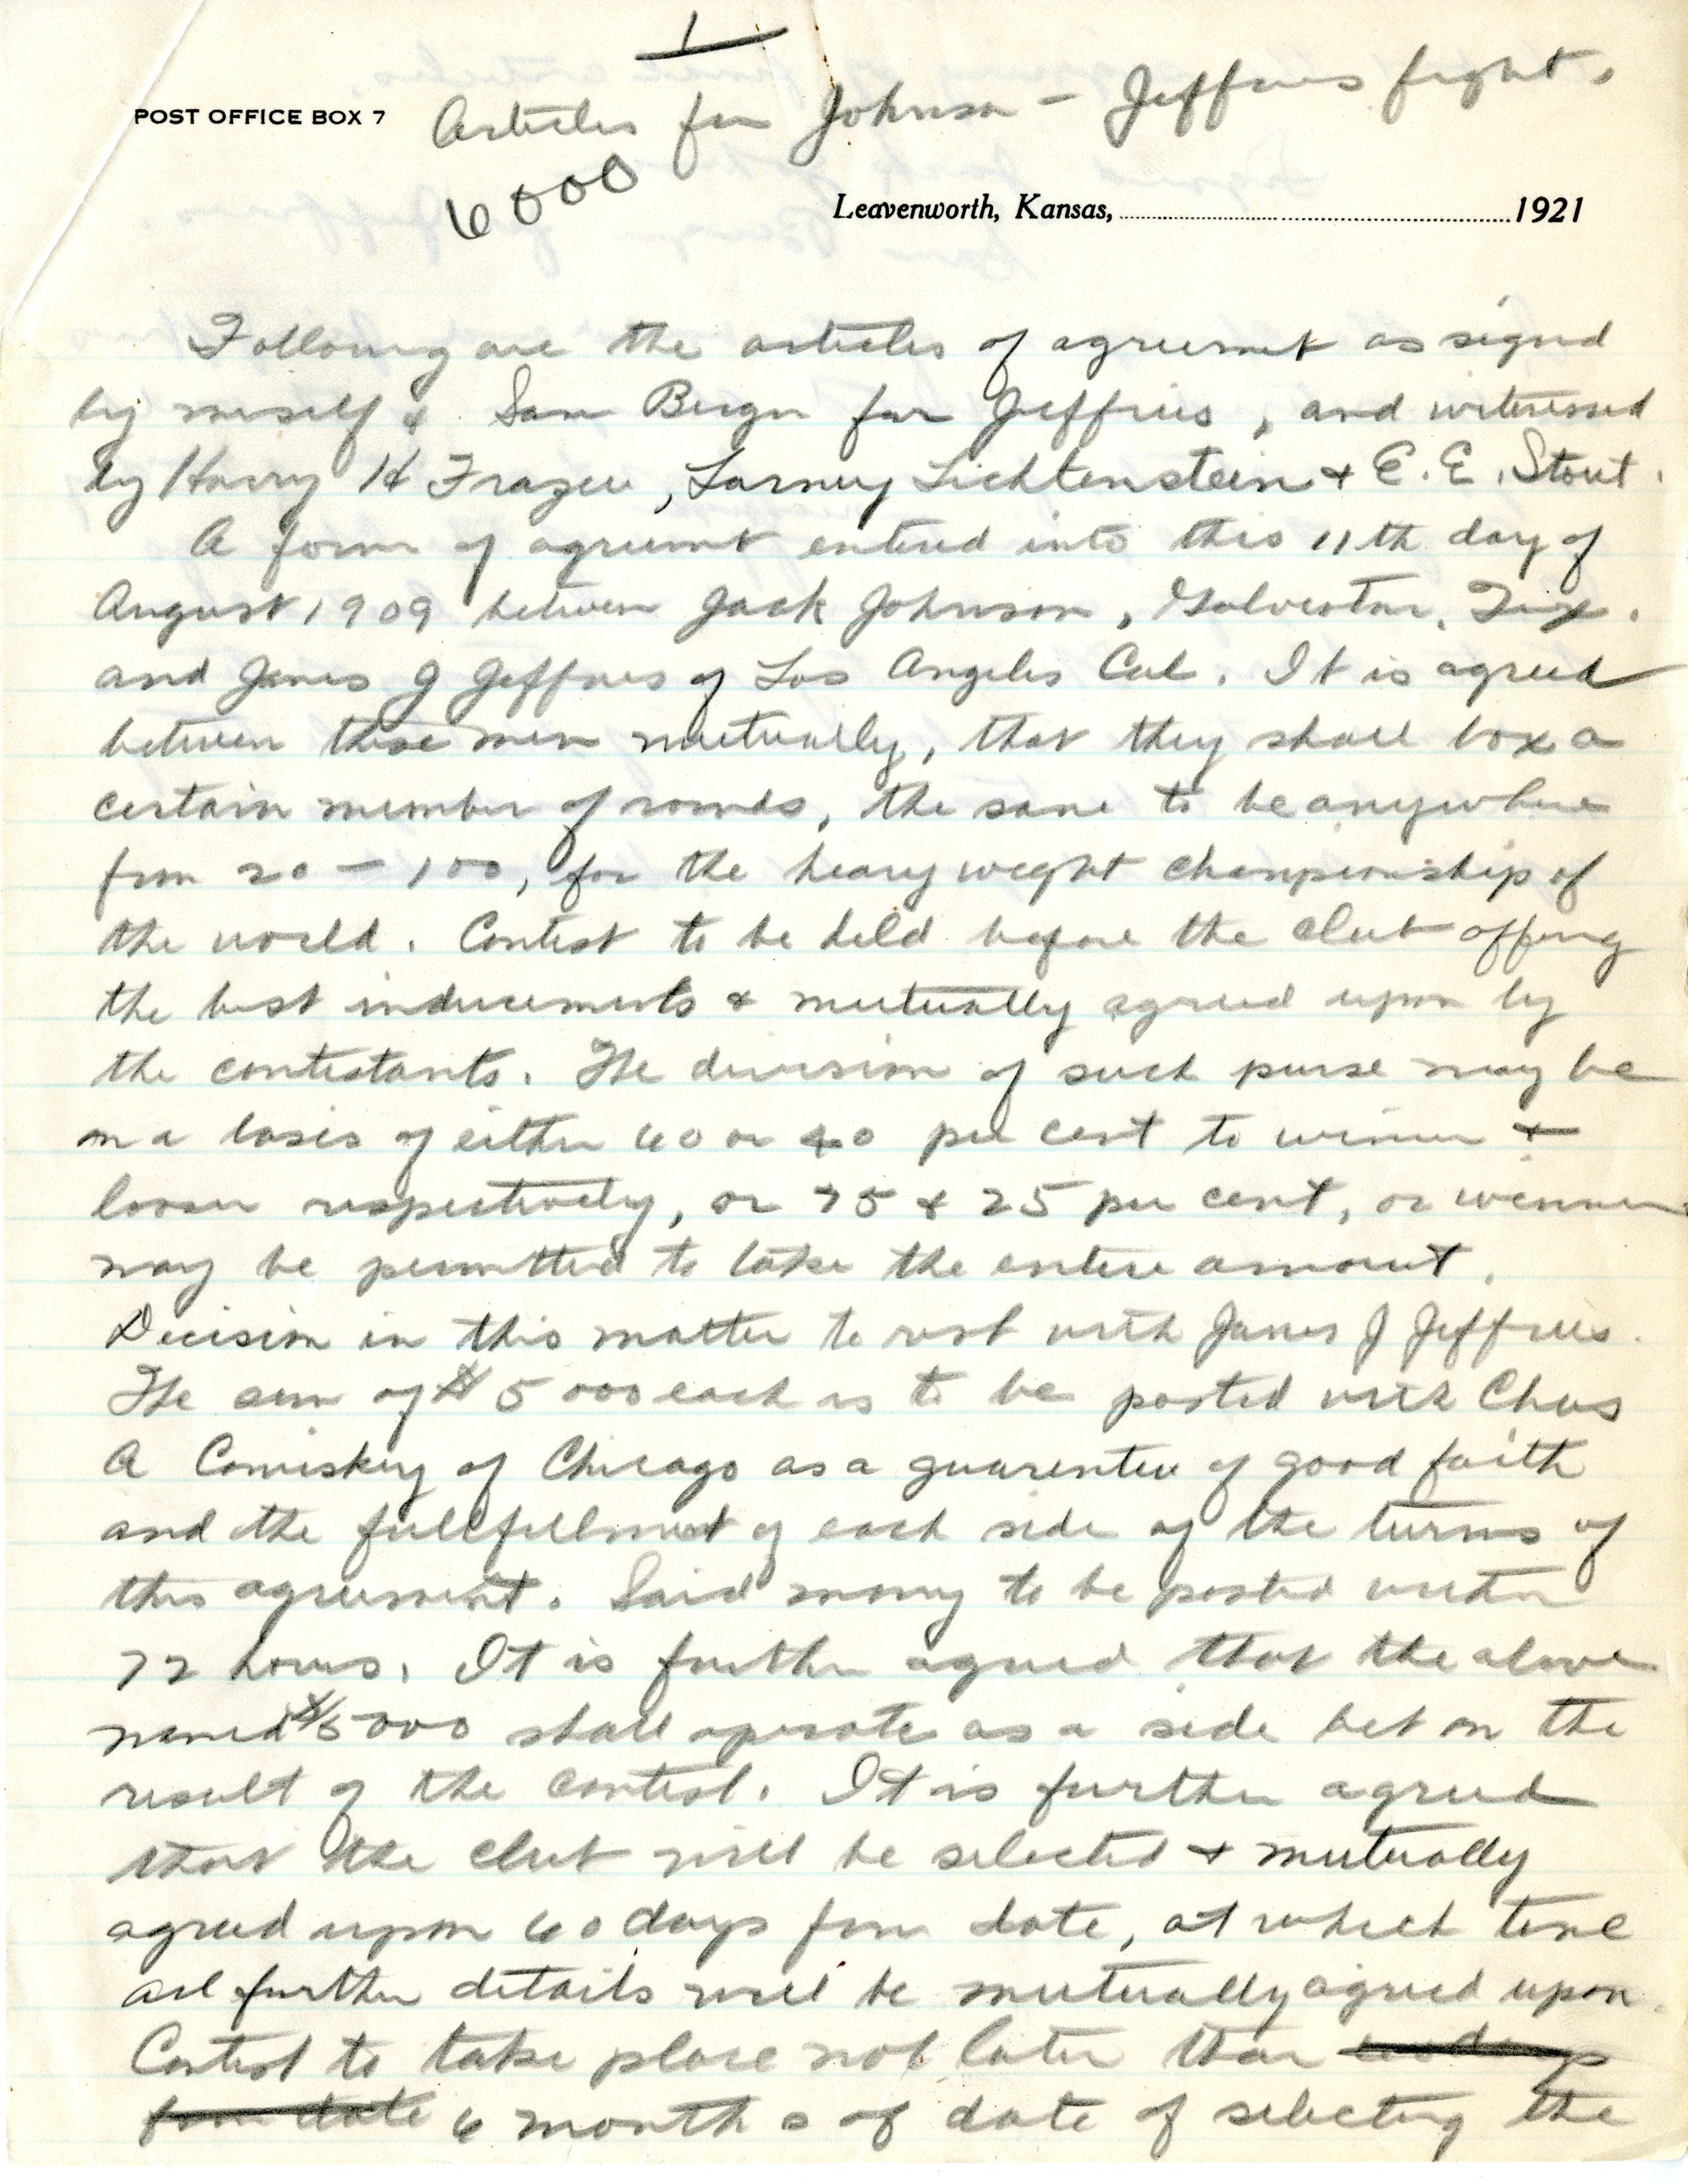 1
Articles for Johnson - Jeffries fight.
POST OFFICE BOX 7
6000
Leavenworth, Kansas, 1921
Following are the articles of agreement as signed
by myself & Sam Berger for Jeffries, and witnessed
by Harry H Frazee, Larney Lichtenstein & E. E. Stout.
A form of agreement entered into this 11th day of
August 1909 between Jack Johnson, Galveston, Tex.
and James J Jeffries of Los Angeles Cal. It is agreed
between these men mutually, that they shall box a
certain member of rounds, the same to be anywhere
from 20 - 100, for the heavy weght championship of
the world. Contest to be held before the club offering
the best inducements & mutually agreed upon by
the contestants. The division of such purse may be
on a basis of either 60 or 40 per cent to winner &
looser respectively, or 75 & 25 per cent, or winner
may be permitted to take the entire amount.
Decision in this matter to rest with James J Jeffries.
The sum of $5000 each is to be posted with Chas
A Comiskey of Chicago as a guarentee of good faith
and the fullfillment of each side of the turms of
this agreement. Said money to be posted within
72 hours. It is further agreed that the above
named $5000 shall operate as a side bet on the
result of the contest. It is further agreed
that the club will be selected & mutually
agreed upon 60 days from date, at which time
all further details will be mutually agreed upon.
Contest to take place not later than
from date 6 months of date of selecting the